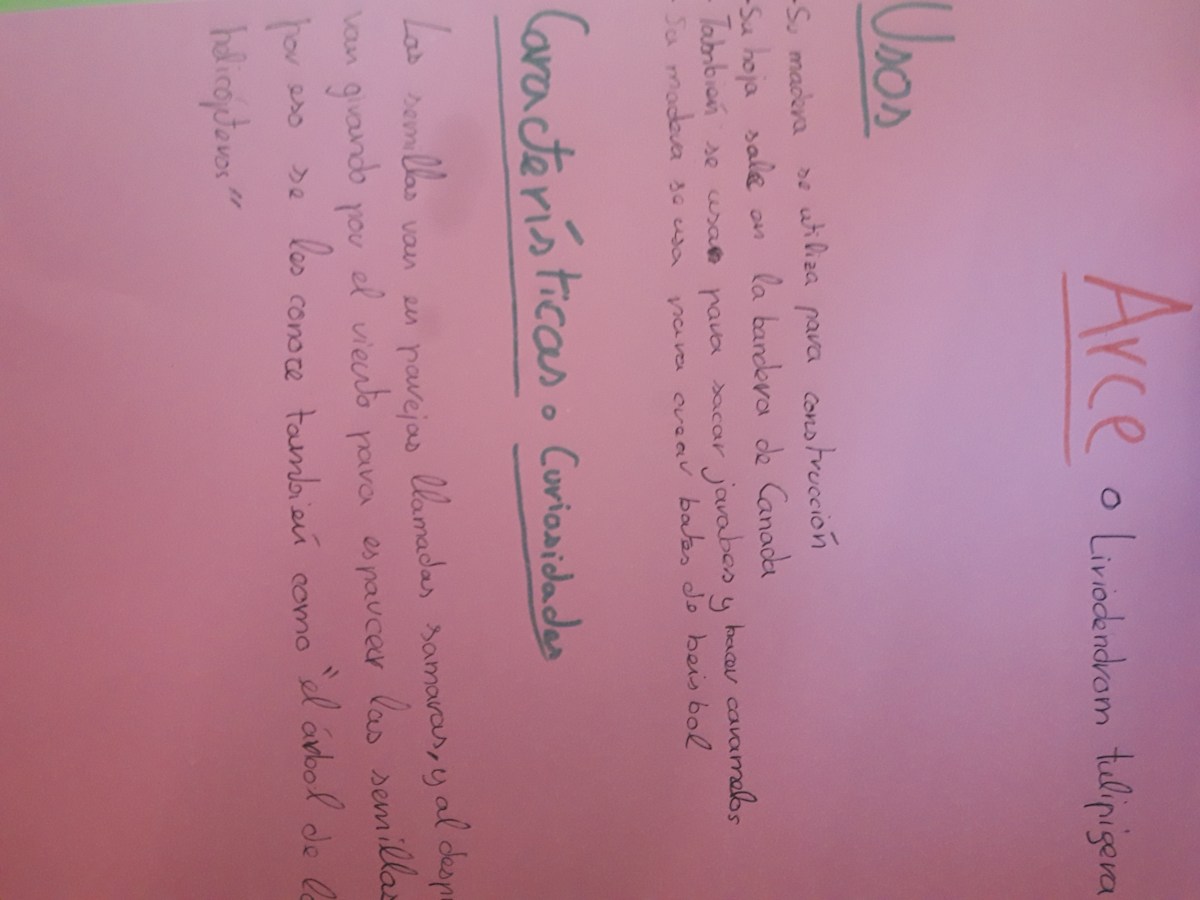 Arce o Liriodendrom tulipigera
Usos
-Su madera se utiliza para construcción
-Su hoja sale en la bandera de Canada
- También se usan para sacar jarabes y hacer caramelos
- Su madera se usa para crear bates de beisbol
Características o Curiosidades
Las semillas van en parejas llamadas samaras, y al
van girando por el viento para esparcer las semillas
por eso se les conoce también como "el árbol de
helicópteros"